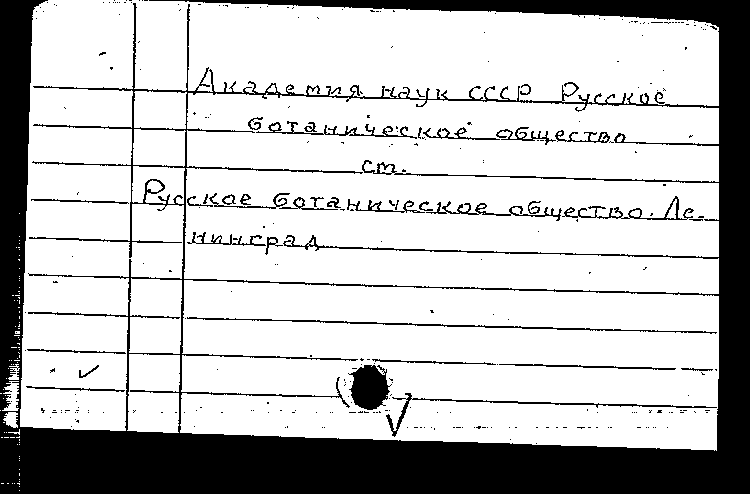 Академия наук СССР Русское
ботаническое общество
ст.
Русское ботаническое общество. Ле-
нинград